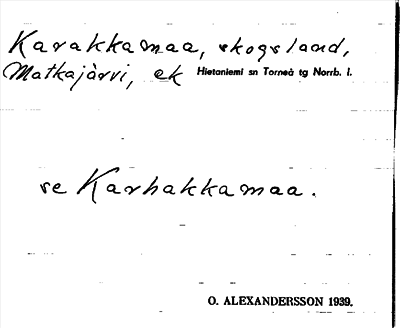 Karakkamaa, skogsland,
Matkajärvi, ek Hietaniemi sn Torneå tg Norrb. l.
se Karhakkamaa.
O. ALEXANDERSSON 1939.